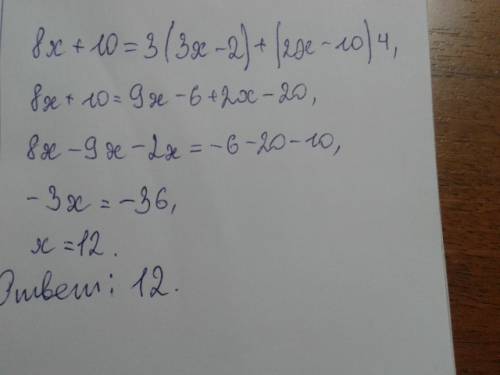 8x + 10 = 3(3x - 2) + (2x - 10)4,
8x + 10 = 9x - 6 + 2x - 20,
8x - 9x - 2x = -6 - 20 - 10,
-3x = -36,
x = 12.
Ответ: 12.